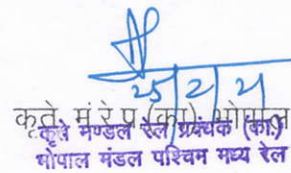 कृते मं रे प्र (का) भोपाल
कृते मण्डल रेल प्रबंधक (का.)
भोपाल मंडल पश्चिम मध्य रेल